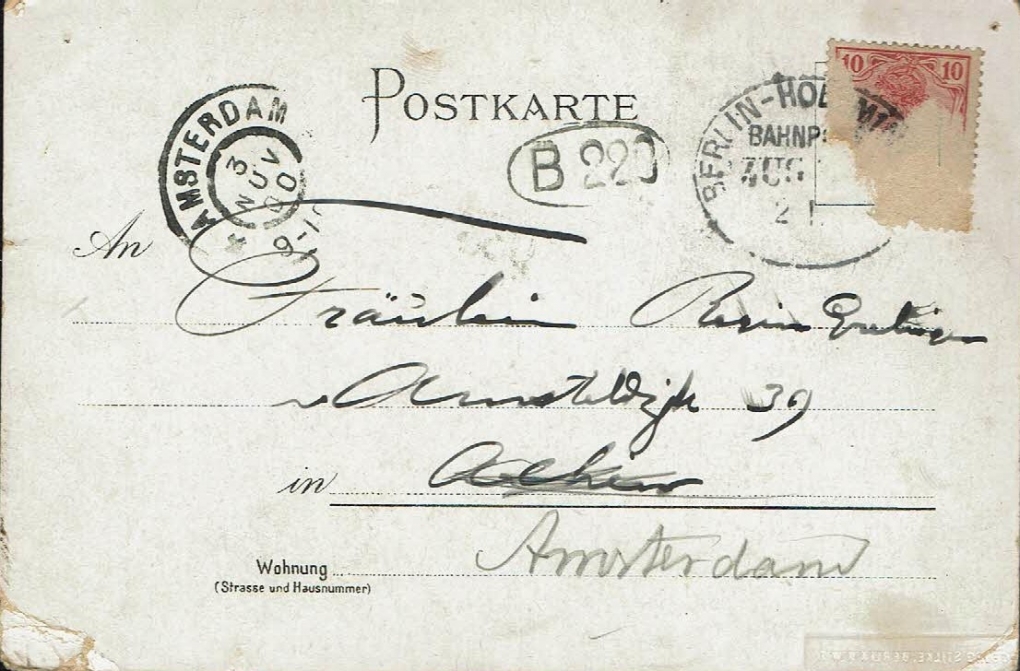 POSTKARTE
10 10
AMSTERDAM
3
NOV
00
9-10
B 220
BERLIN-HO
BAHNP
ZUG
2 1
An
Fräulein
Amsteldijk 39
in
Amsterdam
Wohnung
(Strasse und Hausnummer)